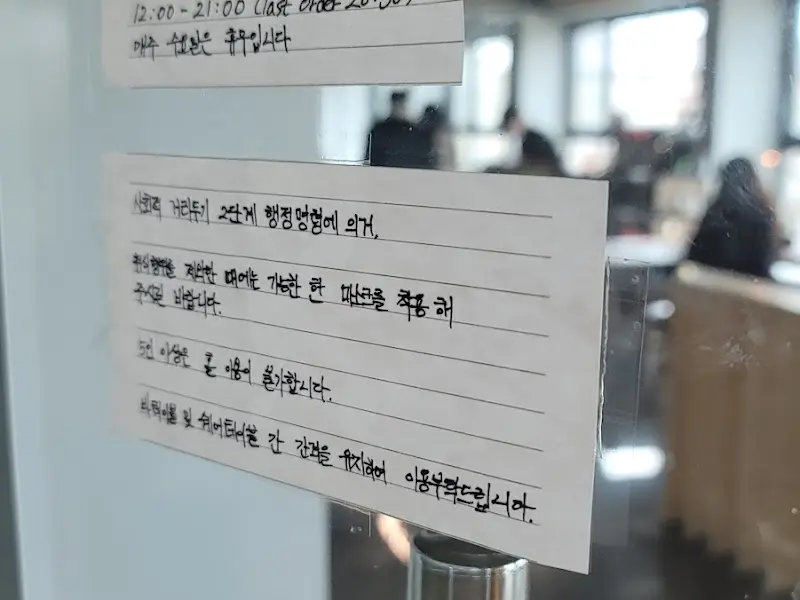 12:00 - 21:00 (last order 20:30)
매주 수요일은 휴무입니다
사회적 거리두기 2단계 행정명령에 의거,
취식행위를 제외한 때에는 가능한 한 마스크를 착용 해
주시길 바랍니다.
5인 이상은 홀 이용이 불가합니다.
바 테이블 및 쉐어테이블 간 간격을 유지하여 이용부탁드립니다.